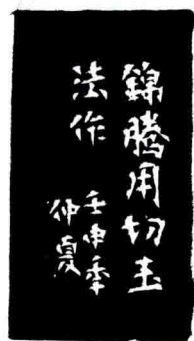 錦騰用切玉
法作
壬申季
仲夏